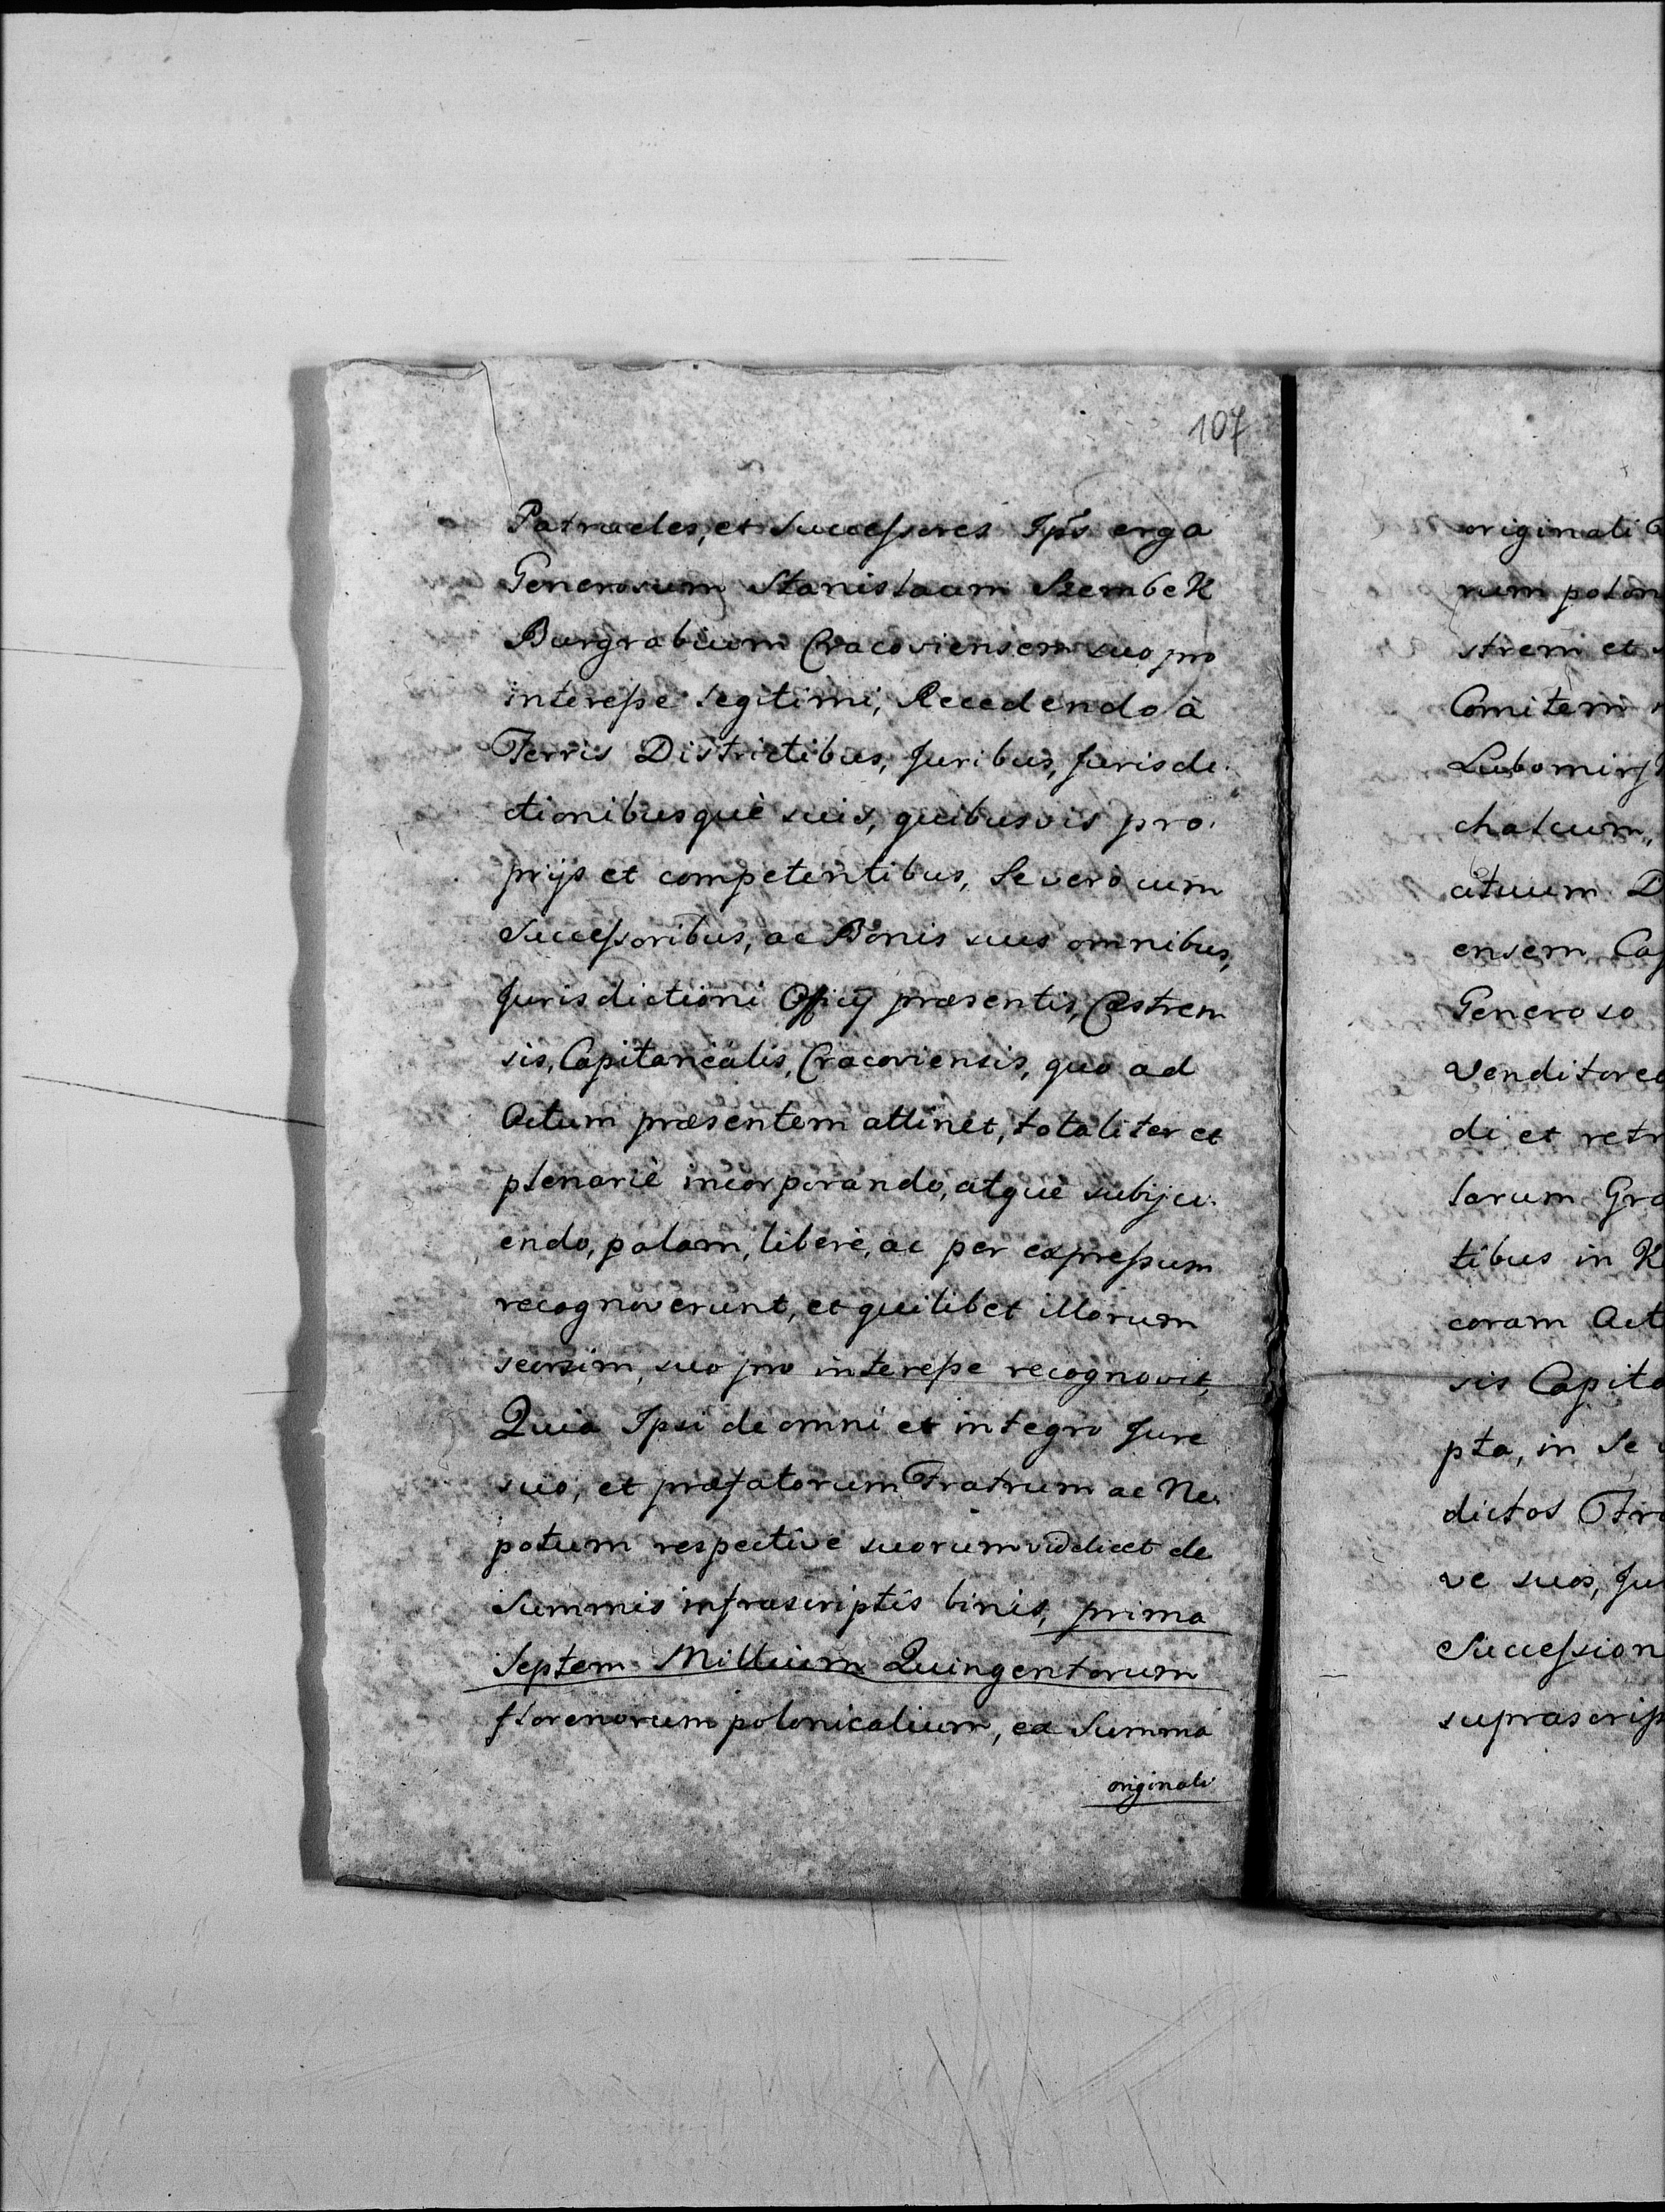 107
Patrueles, et Successores Ips̄. erga
Generosum Stanislaum Szembek
Burgrabium Cracoviensem suo pro
interesse legitimi, Recedendo à
Terris Districtibus, Juribus, Jurisdi
ctionibusquè suis, quibusvis pro
prijs et competentibus, Se verò cum
Successoribus, ac Bonis suis omnibus,
Jurisdictioni Officij præsentis, Castren
sis, Capitanealis, Cracoviensis, quo ad
Actum præsentem attinet, totaliter et
plenariè incorporando, atquè subijci
endo, palam, liberè, ac per expressum
recognoverunt, et quilibet illorum
seorsim, suo pro interesse recognovit,
Quia Ipsi de omni et integro Jure
suo, et præfatorum Fratrum ac Ne
potum respectivè suorum videlicet de
Summis infrascriptis binis, prima
Septem Millium Quingentorum
florenorum polonicalium, ex Summa
originali
originali
rum polon
strem et
Comitem
Lubomirs
chalcum,
atuum D
ensem Cap
Generoso
Venditore
di et retr
larum Gra
tibus in K
coram Act
sis Capita
pta, in Se
dictos Fra
ve suos, Ju
Succession
suprascrip